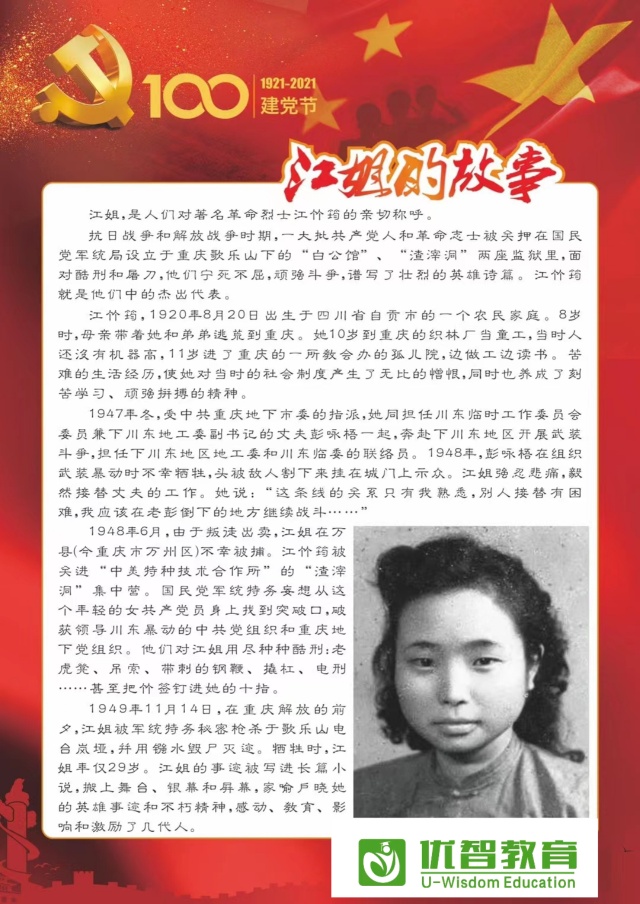 100
1921-2021
建党节
江姐的故事
江姐,是人们对著名革命烈士江竹筠的亲切称呼。
抗日战争和解放战争时期,一大批共产党人和革命志士被关押在国民
党军统局设立于重庆歌乐山下的“白公馆”、“渣滓洞”两座监狱里,面
对酷刑和屠刀,他们宁死不屈,顽强斗争,谱写了壮烈的英雄诗篇。江竹筠
就是他们中的杰出代表。
江竹筠,1920年8月20日出生于四川省自贡市的一个农民家庭。8岁
时,母亲带着她和弟弟逃荒到重庆。她10岁到重庆的织袜厂当童工,当时人
还没有机器高,11岁进了重庆的一所教会办的孤儿院,边做工边读书。苦
难的生活经历,使她对当时的社会制度产生了无比的憎恨,同时也养成了刻
苦学习、顽强拼搏的精神。
1947年冬,受中共重庆地下市委的指派,她同担任川东临时工作委员会
委员兼下川东地工委副书记的丈夫彭咏梧一起,奔赴下川东地区开展武装
斗争,担任下川东地区地工委和川东临委的联络员。1948年,彭咏梧在组织
武装暴动时不幸牺牲,头被敌人割下来挂在城门上示众。江姐强忍悲痛,毅
然接替丈夫的工作。她说:“这条线的关系只有我熟悉,别人接替有困
难,我应该在老彭倒下的地方继续战斗……”
1948年6月,由于叛徒出卖,江姐在万
县(今重庆市万州区)不幸被捕。江竹筠被
关进“中美特种技术合作所”的“渣滓
洞”集中营。国民党军统特务妄想从这
个年轻的女共产党员身上找到突破口,破
获领导川东暴动的中共党组织和重庆地
下党组织。他们对江姐用尽种种酷刑:老
虎凳、吊索、带刺的钢鞭、撬杠、电刑
……甚至把竹签钉进她的十指。
1949年11月14日,在重庆解放的前
夕,江姐被军统特务秘密枪杀于歌乐山电
台岚垭,并用镪水毁尸灭迹。牺牲时,江
姐年仅29岁。江姐的事迹被写进长篇小
说,搬上舞台、银幕和屏幕,家喻户晓她
的英雄事迹和不朽精神,感动、教育、影
响和激励了几代人。
优智教育
U-Wisdom Education